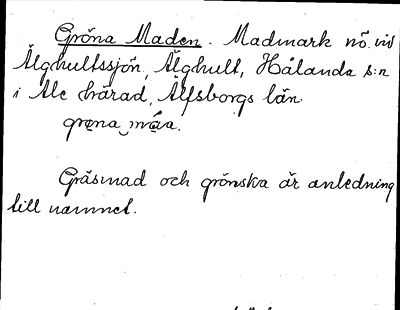 Gröna Maden. Madmark nö. vid
Älghultssjön, Älghult, Hålanda s:n
i Ale härad, Älfsborgs län.
grøna måa.
Gräsmad och grönska är anledning
till namnet.